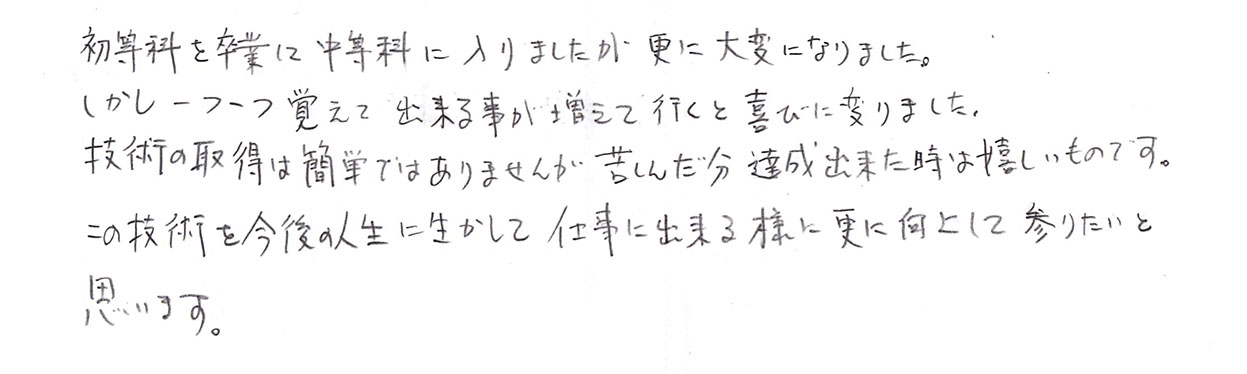 初等科を卒業に中等科に入りましたが更に大変になりました。
しかし一つ一つ覚えて出来る事が増えて行くと喜びに変りました。
技術の取得は簡単ではありませんが苦しんだ分達成出来た時は嬉しいものです。
この技術を今後の人生に生かして仕事に出来る様に更に向上して参りたいと
思います。